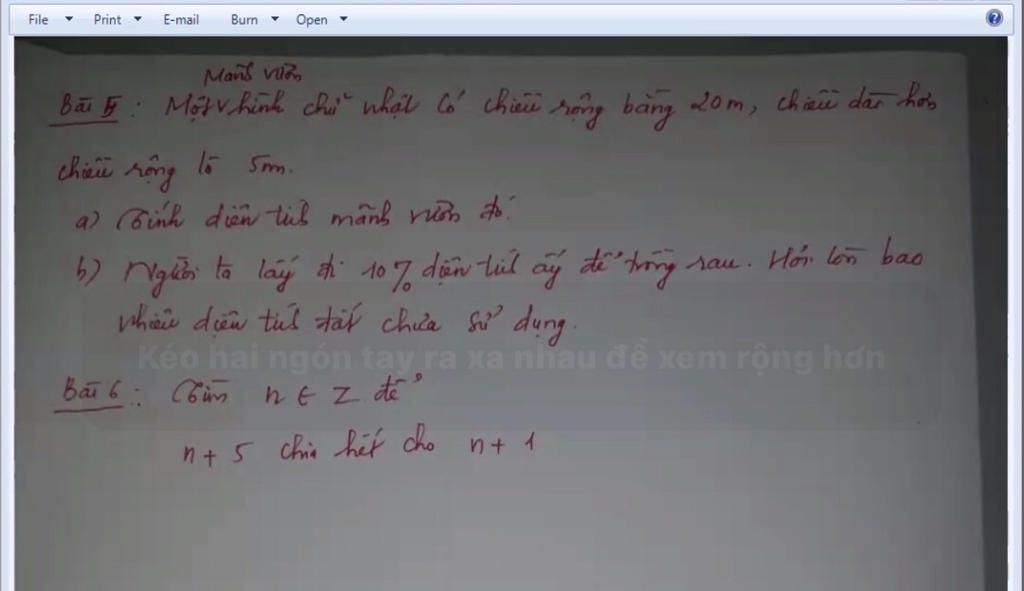 File Print E-mail Burn Open
Mảnh vườn
Bài 5: Một hình chữ nhật có chiều rộng bằng 20m, chiều dài hơn
chiều rộng là 5m.
a) Tính diện tích mảnh vườn đó.
b) Người ta lấy đi 10% diện tích ấy để trồng rau. Hỏi còn bao
nhiêu diện tích đất chưa sử dụng.
Kéo hai ngón tay ra xa nhau để xem rộng hơn
Bài 6: Tìm n ∈ Z để
n + 5 chia hết cho n + 1